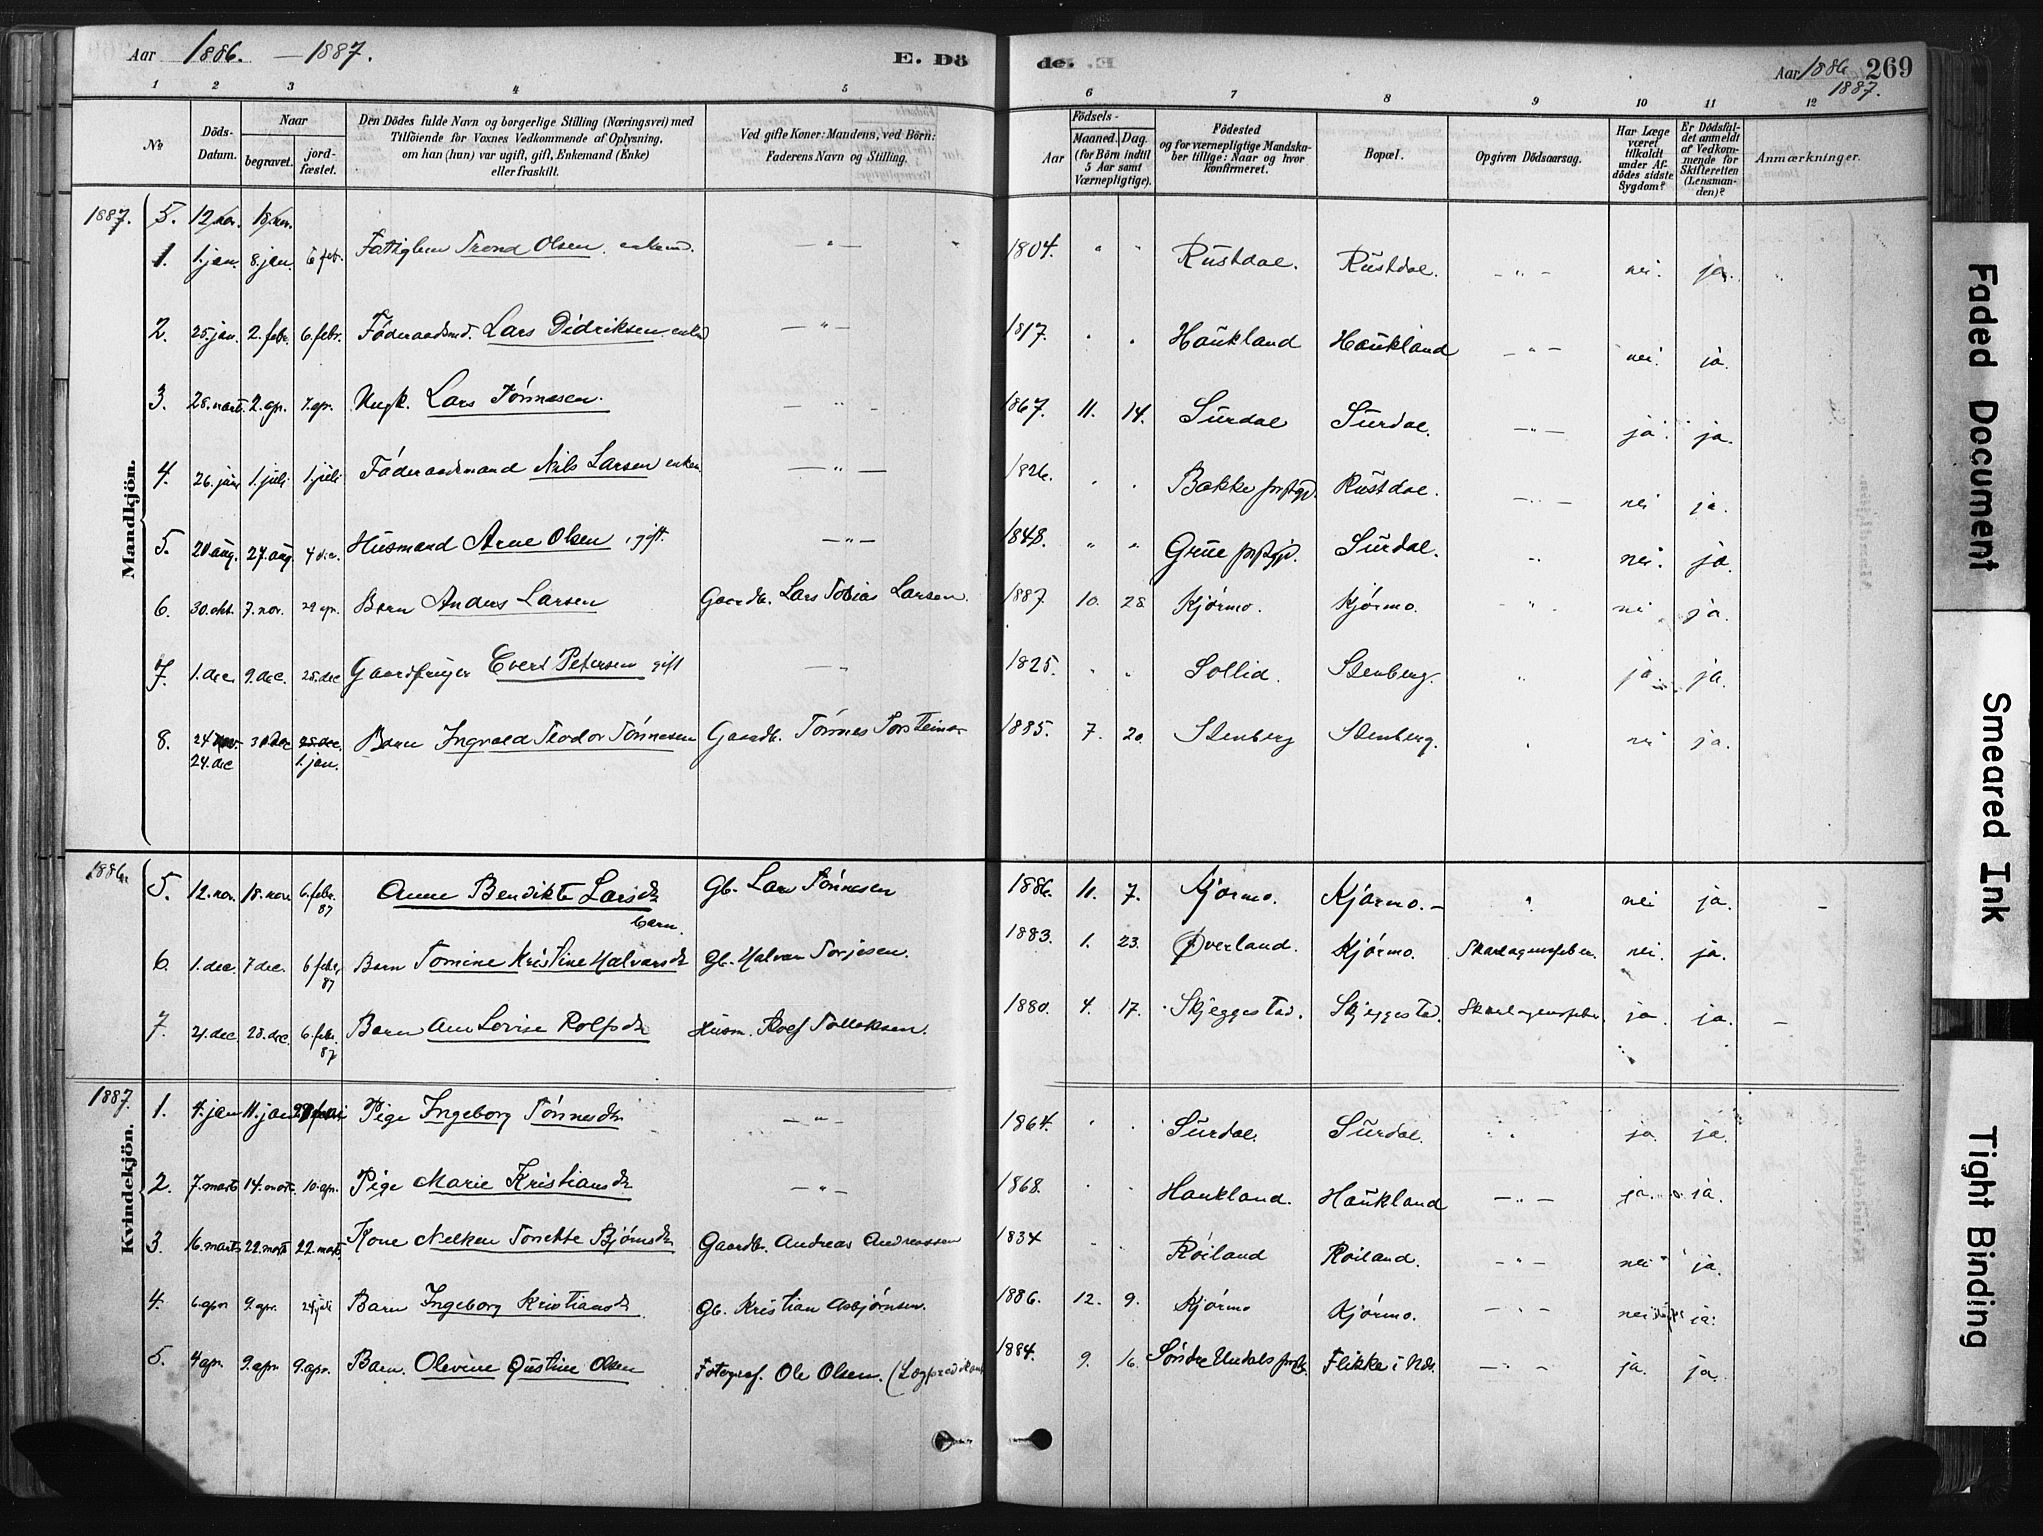 Aar 1886. — 1887. E. Dö
de. Aar 1886 269
1887.
1 2 3 4 5
6 7 8 9 10 11 12
No
Döds-Datum.
Naar
begravet.
jordfæstet.
Den Dödes fulde Navn og borgerlige Stilling (Næringsvei) med
Tilföiende for Voxnes Vedkommende af Oplysning,
om han (hun) var ugift, gift, Enkemand (Enke)
eller fraskilt.
Ved gifte Koner: Mandens, ved Börn:
Faderens Navn og Stilling.
Födsels-
Aar
Maaned. Dag.
(for Börn indtil
5 Aar samt
Værnepligtige).
Födested
og for værnepligtige Mandskaber tillige: Naar og hvor
konfirmeret.
Bopæl.
Opgiven Dödsaarsag.
Har Læge
været
tilkaldt
under Afdödes sidste
Sygdom?
Er Dödsfaldet anmeldt
af Vedkommende for
Skifteretten
(Lensmanden)?
Anmærkninger.
Mandkjön.
1887. 5. 12 nov. 18 nov.
1. 1. jan. 8. jan. 6 febr. Fattiglem Trond Olsen. enkemd. — " — 1804. " " Rustdal. Rustdal. — " — nei. ja.
2. 25. jan. 2. febr. 6. febr. Föderaadsmd. Lars Didriksen enkm — " — 1817. " " Haukland Haukland — " — nei. ja.
3. 28. marts 2. apr. 7. apr. Ungk. Lars Tönnesen. — " — 1867. 11. 14. Surdal Surdal. — " — ja. ja.
4. 26. juni 1. juli 1. juli Föderaadsmand Nils Larsen enkem — " — 1826. " " Bakke prstgd. Rustdal. — " — nei ja.
5. 20 aug. 27. aug 4 dec. Husmand Arne Olsen, gift. — " — 1848. " " Grue prstgd. Surdal. " nei. ja.
6. 30. okt. 7. nov. 29 apr. Barn Anders Larsen Gaardb. Lars Tobias Larsen. 1887. 10. 28. Kjörmo. Kjörmo. " nei ja.
7. 1. dec. 9. dec. 25. dec Evert Petersen gift — " 1825. " " Sollid. Stenberg. " ja. ja.
8. 24 nov. 30 dec 25. dec. Barn Ingvald Teodor Tönnesen Gaardb. Tönnes Torsteinsen 1885. 7. 20. Stenberg Stenberg. " nei ja.
24. dec 1. jan.
Kvindekjön.
1886. 5. 12. nov. 18. nov 6. febr. 87 Anne Bendikte Larsdr barn. Gb. Lars Tönnesen 1886. 11. 7. Kjörmo. Kjörmo. — " nei ja. —
6. 1. dec. 7 dec. 6 febr. 87 Barn Tomine Kristine Halvarsdr Gb. Halvar Torjesen. 1883. 1. 23. Øverland. Kjörmo. Skarlagensfeber. nei. ja.
7. 21. dec. 28. dec. 6. febr. 87 Barn Ane Lovise Rolfsdr Husm. Rolf Tollaksen. 1880. 4. 17. Skjeggestad. Skjeggestad. Skarlagensfeber. ja. ja. —
1887. 1. 4. jan 11. jan Pige Ingeborg Tönnesdr — " 1864. " " Surdal. Surdal. " ja. ja.
2. 7. marts 14. marts. 10. apr. Pige Marie Kristiansdr — " — 1868. " " Haukland. Haukland — " — ja. ja.
3. 16. marts 22. marts 22. marts Kone Tonette Bjömsdr Gaardb. Andreas Andreassen 1834 " " Röiland Röiland. — " — nei ja.
4. 6. apr 9. apr. 24 juli Barn Ingeborg Kristiansdr Gb. Kristian Asbjörnsen. 1886. 12. 9. Kjörmo Kjörmo. — " — nei ja.
5. 4 apr. 9. apr. 9. apr. Barn. Olevine Gustine Olsen Fotograf. Ole Olsen. (Lægpredikant 1884. 9. 16. Söndre Undals prstg. Flikke i Nds. — " — ja. ja.
Faded Document
Smeared Ink
Tight Binding